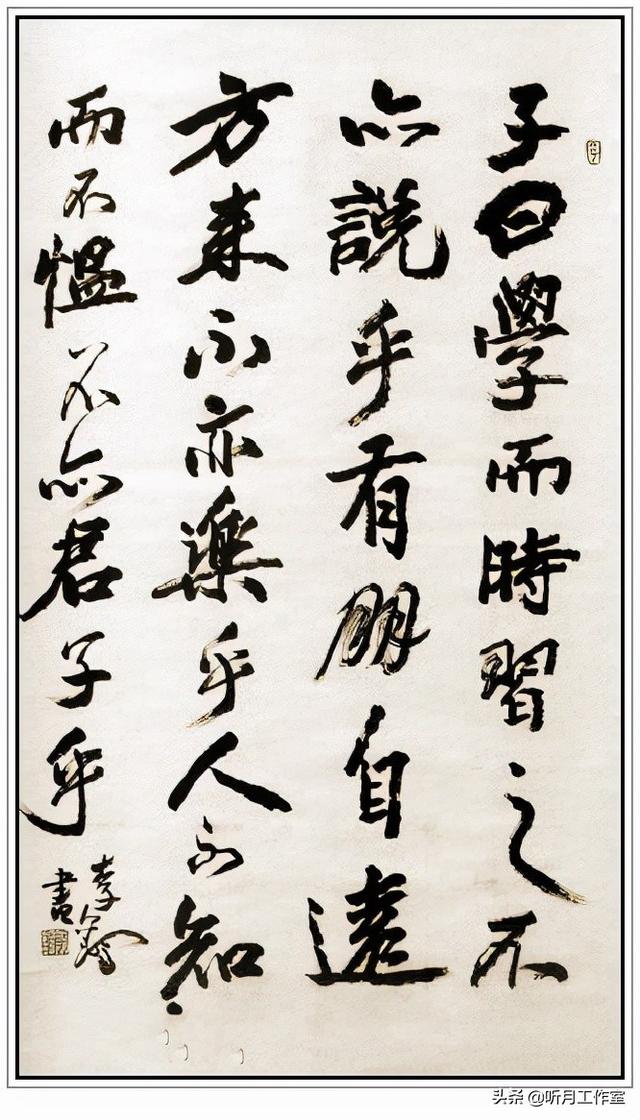 子曰學而時習之不
亦說乎有朋自遠
方来不亦樂乎人不知
而不愠不亦君子乎
李
書
头条 @听月工作室